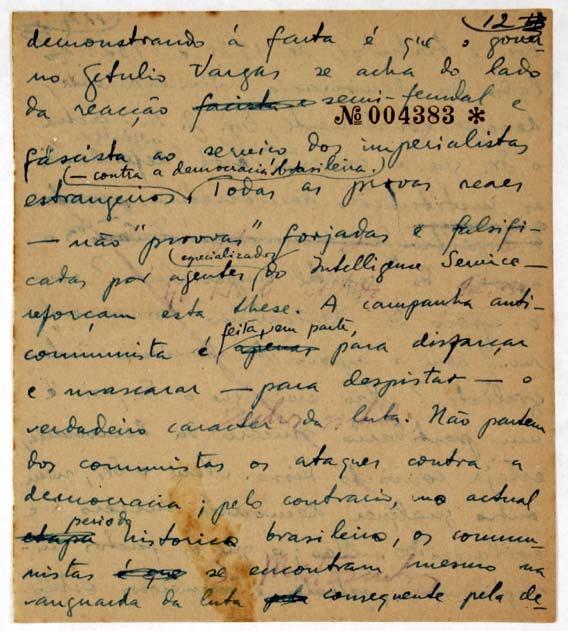 12
demonstrando á farta é que o gover-
no Getulio Vargas se acha do lado
da reacção facista e semi-feudal e
Nº 004383 *
fascista ao serviço dos imperialistas
(— contra a democracia brasileira.)
estrangeiros. Todas as provas reaes
— não "provas" forjadas e falsifi-
(especializados)
cadas por agentes do Intelligense Service —
reforçam esta these. A campanha anti-
feita, em parte,
communista é apenas para disfarçar
e mascarar — para despistar — o
verdadeiro caracter da luta. Não partem
dos communistas os ataques contra a
democracia; pelo contrario, no actual
periodo
etapa historico brasileiro, os commu-
nistas é que se encontram mesmo na
vanguarda da luta pela consequente pela de-